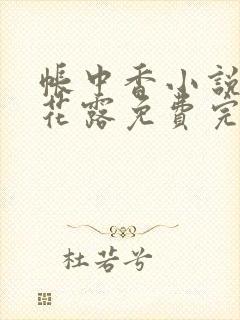 帳中香小說
花露免費完
杜若兮